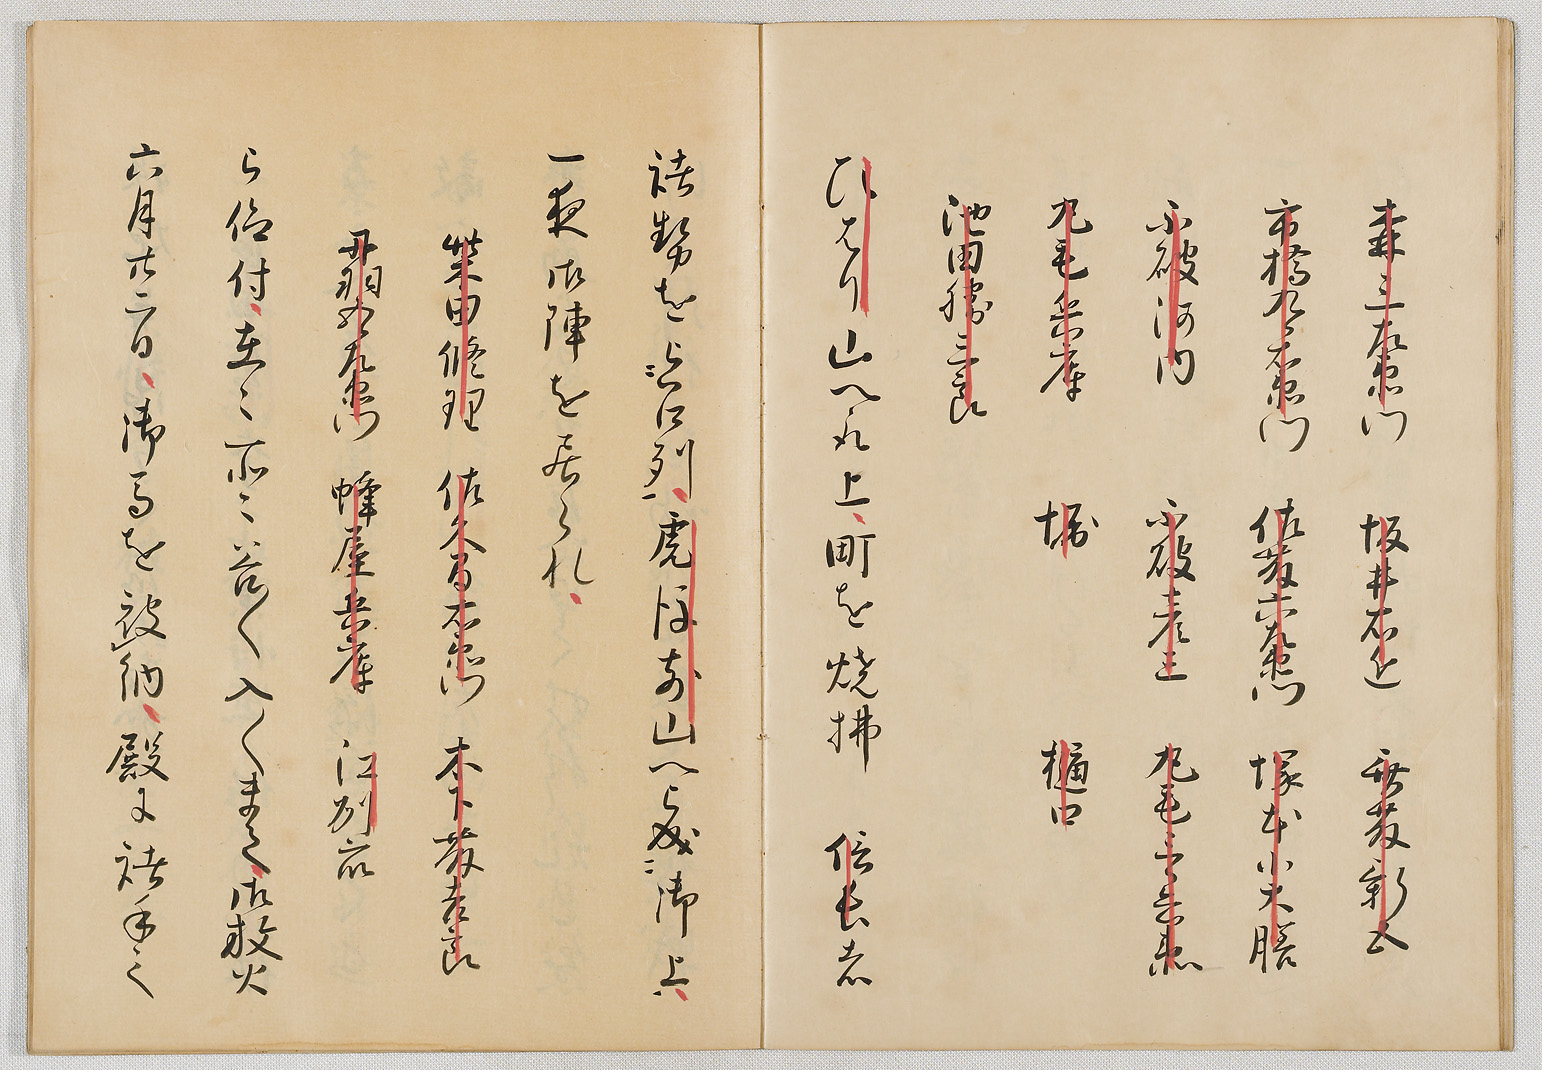 森三左衛門 坂井右近 斎藤新五
市橋九郎右衛門 佐藤六左衛門 塚本小大膳
不破河内 不破彦三 丸毛三郎兵衛
丸毛兵庫 堀 樋口
池田勝三郎
ひはり山へ取上、町を焼拂 信長者
諸勢を被召列、虎御前山へ被成御上、
一夜御陣を居られ、
柴田修理 佐久間右衛門 木下藤吉郎
丹羽五郎左衛門 蜂屋兵庫 江州衆
被仰付、在々所々谷〱入〱まて、御放火
六月廿二日、御馬を被納、殿に諸手之